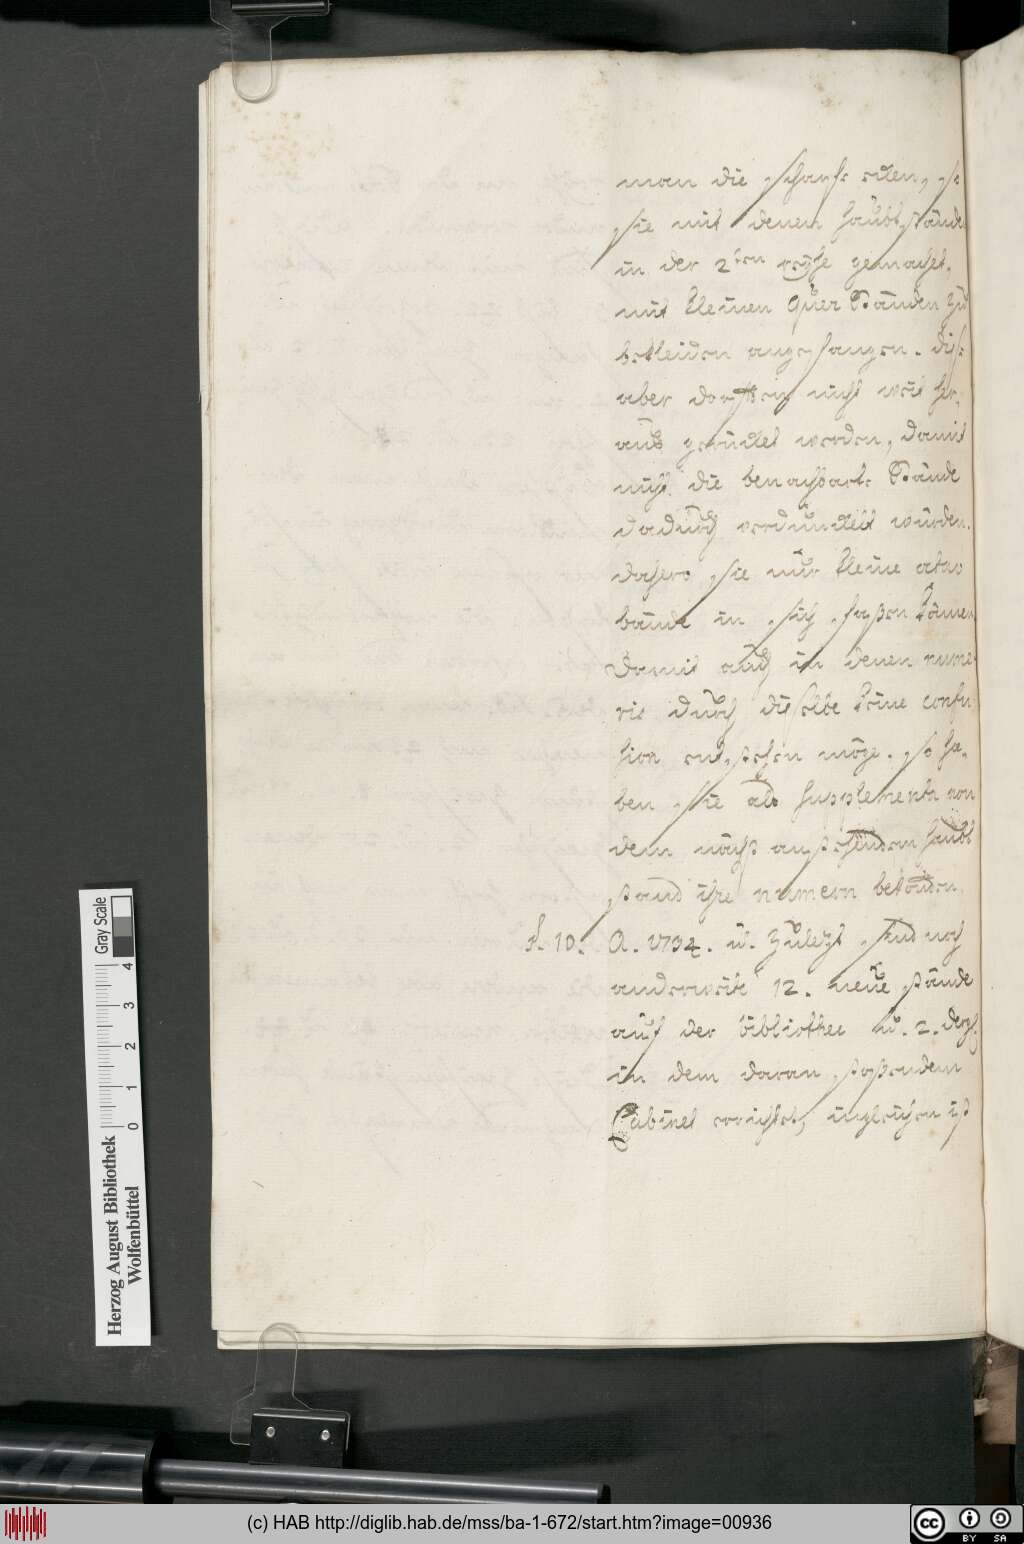 man die scharfe eken, so
sie mit denen haubt ständen
in der 2ten reyhe gemachet,
mit kleinen Quer Ständen zu
bekleiden angefangen. diese
aber dorfften nicht weit her,
auß gerücket werden, damit
nicht die benachbarte Stände
dadurch verdunckelt würden.
dahero sie nur kleine octav
bände in sich faßen können
damit auch in denen nume-
ris durch dieselbe keine confu
sion entstehen möge, so ha,
ben sie als supplementa von
dem nächst anstehenden haubt
stand ihre numern bekommen.
§. 10. A. 1734. u. zuletzt sind noch
anderweite 12. neüe stände
auf der bibliothec u. 2. dergl.
in dem daran stoßendem
Cabinet errichtet, ingleichen ist
Herzog August Bibliothek
Wolfenbüttel
0 1 2 3 4
Gray Scale
(c) HAB http://diglib.hab.de/mss/ba-1-672/start.htm?image=00936
cc BY SA